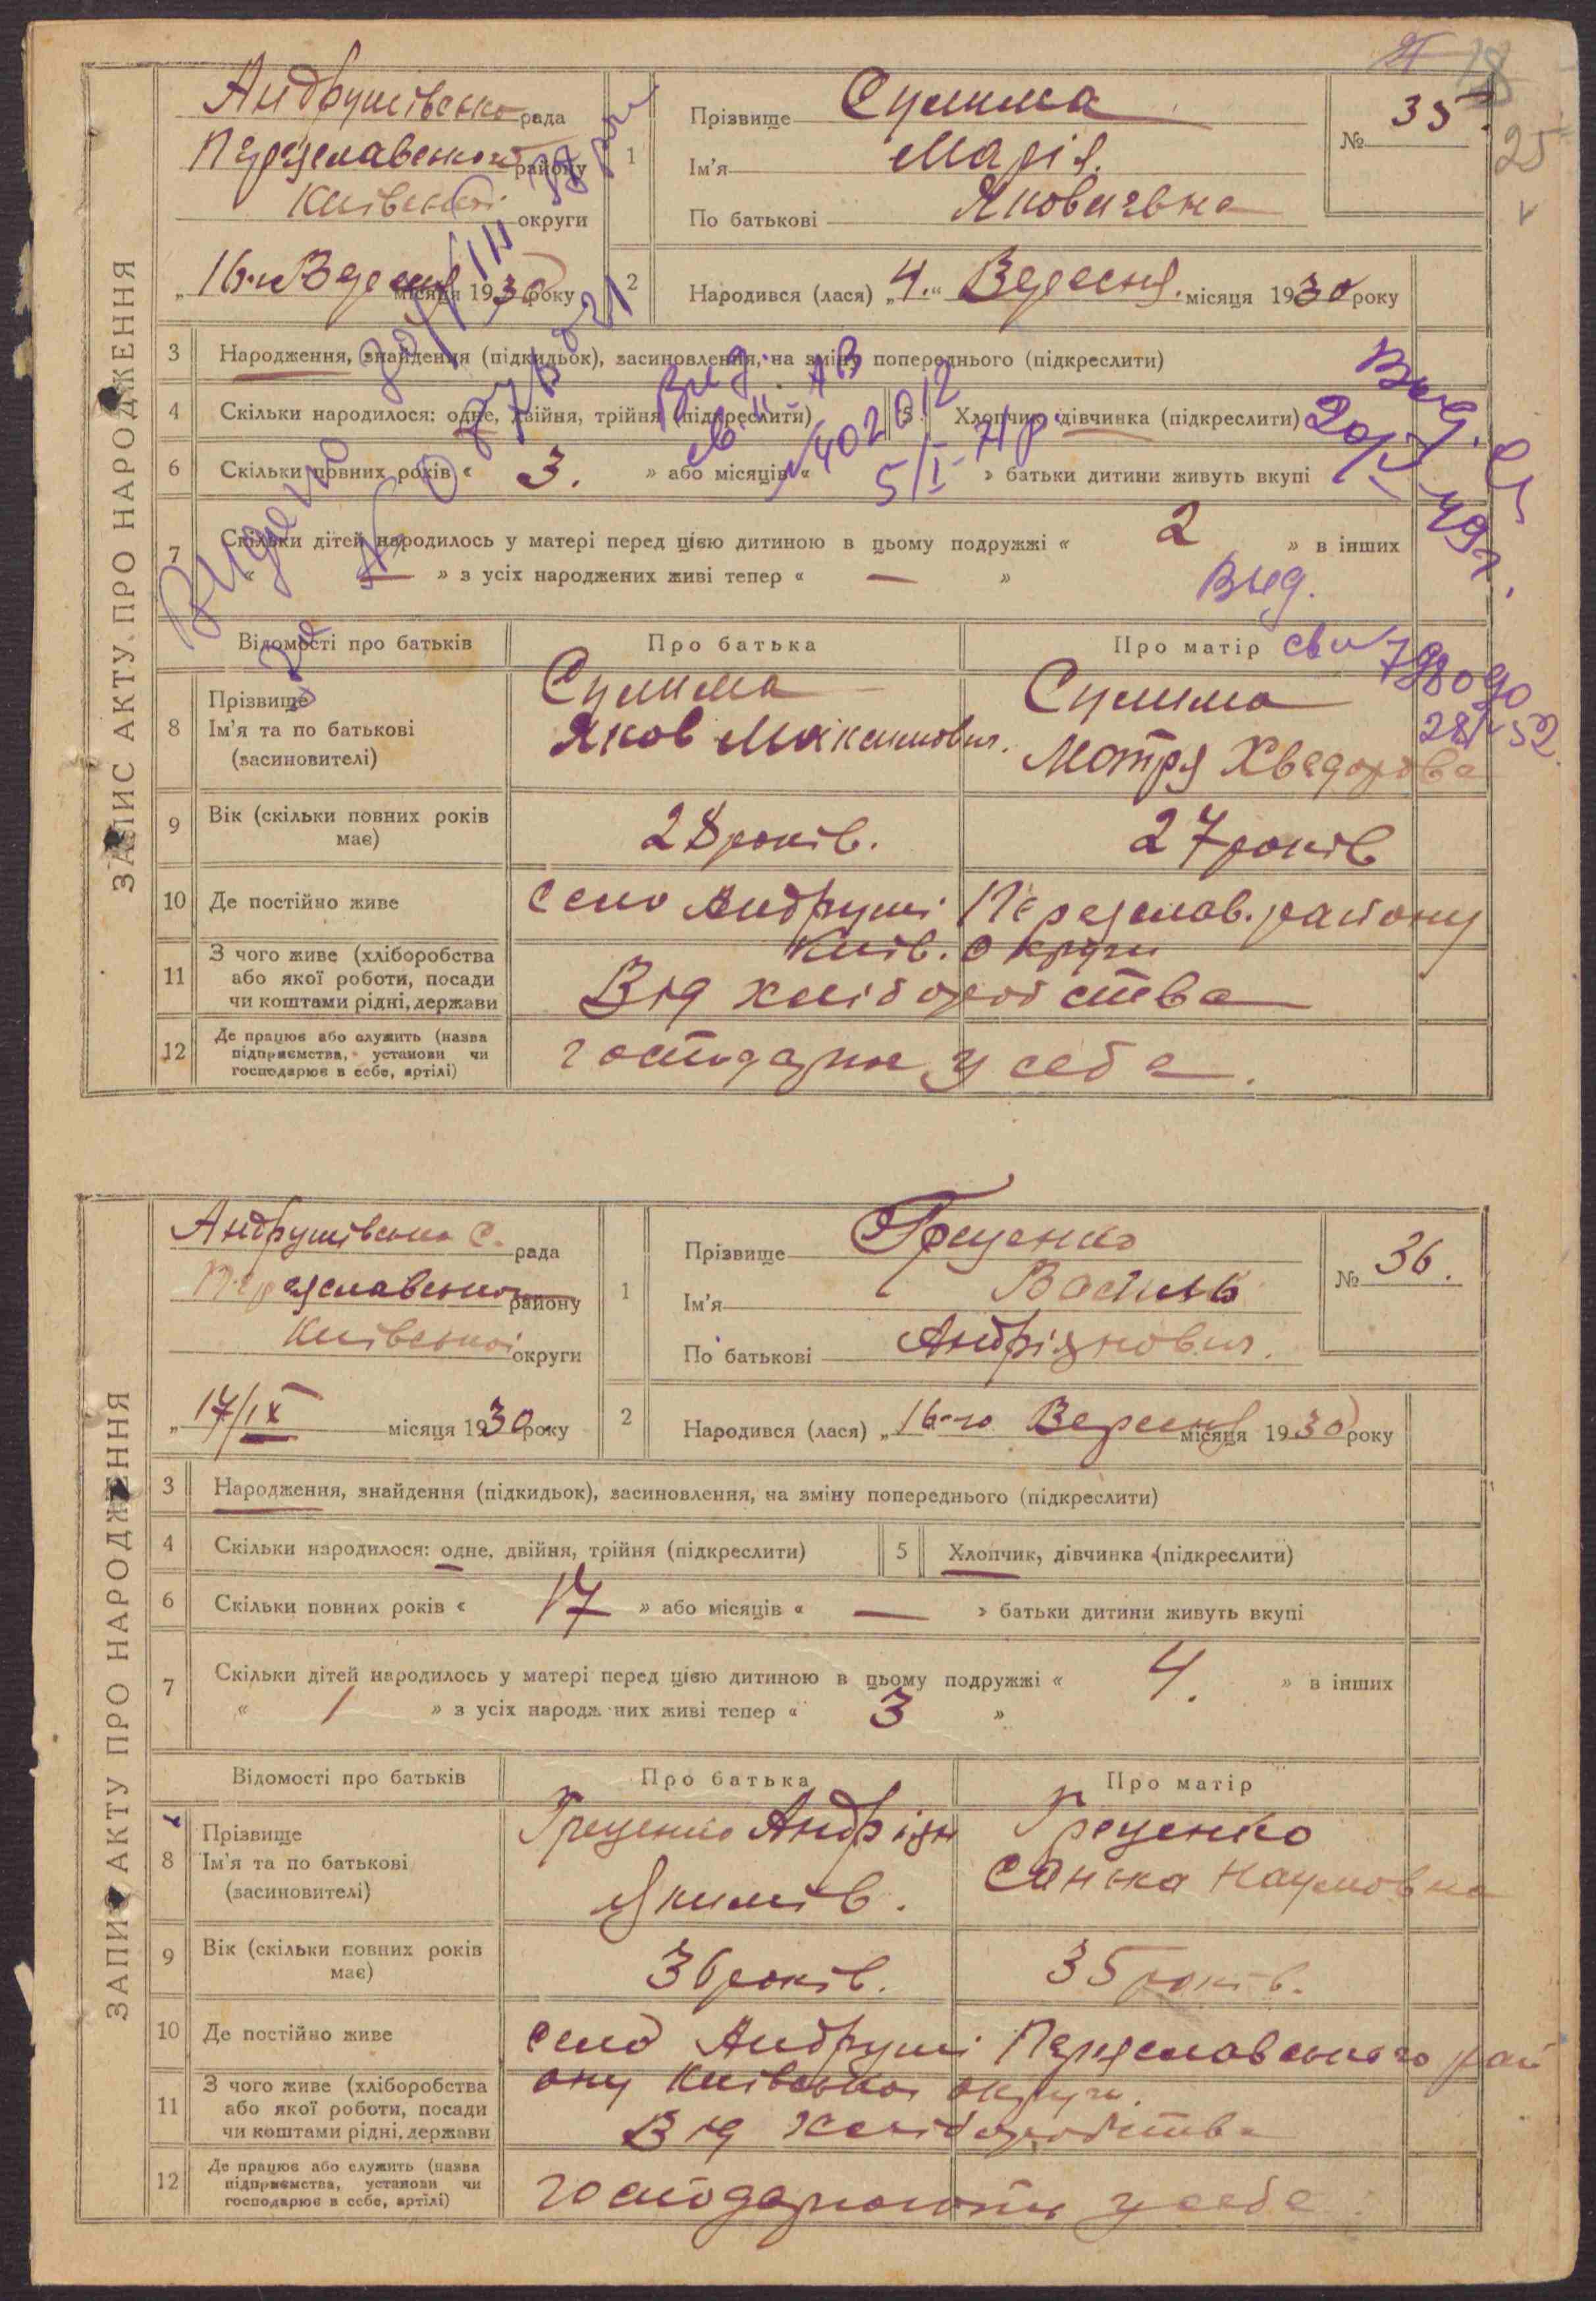 ЗАПИС АКТУ ПРО НАРОДЖЕННЯ
Андрушівсько рада
Переяславського району
Київської округи
„16" Вересня місяця 1930 року
1 Прізвище Сулима
Ім'я Марія
По батькові Яковичвна
№ 35.
25
2 Народився (лася) „4." Вересня. місяця 1930 року
3 Народження, знайдення (підкидьок), засиновлення, на зміну попереднього (підкреслити)
4 Скільки народилося: одне, двійня, трійня (підкреслити)
5 Хлопчик, дівчинка (підкреслити)
6 Скільки повних років « 3. » або місяців « » батьки дитини живуть вкупі
7 Скільки дітей народилось у матері перед цією дитиною в цьому подружжі « 2 » в інших
« — » з усіх народжених живі тепер « — »
Видано
Вид. АВ
5/I-71р
Вид.
20/V 49г.
Вид.
28/V 52
Відомості про батьків
Про батька
Про матір
8 Прізвище
Ім'я та по батькові
(засиновителі)
Сулима
Яков Максимович.
Сулима
Мотря Хведорова
9 Вік (скільки повних років має)
28 років.
27 років
10 Де постійно живе
село Андруші Переяслав. району
Київ. округи
11 З чого живе (хліборобства
або якої роботи, посади
чи коштами рідні, держави
Від хліборобства
12 Де працює або служить (назва
підприємства, установи чи
господарює в себе, артілі)
господарює у себе.
ЗАПИС АКТУ ПРО НАРОДЖЕННЯ
Андрушівсько С. рада
Переяславського району
Київської округи
„17/IX місяця 1930 року
1 Прізвище Греценко
Ім'я Василь
По батькові Андріянович.
№ 36.
2 Народився (лася) „16-го Вересня місяця 1930 року
3 Народження, знайдення (підкидьок), засиновлення, на зміну попереднього (підкреслити)
4 Скільки народилося: одне, двійня, трійня (підкреслити)
5 Хлопчик, дівчинка (підкреслити)
6 Скільки повних років « 17 » або місяців « — » батьки дитини живуть вкупі
7 Скільки дітей народилось у матері перед цією дитиною в цьому подружжі « 4. » в інших
« 1 » з усіх народж них живі тепер « 3 »
Відомості про батьків
Про батька
Про матір
8 Прізвище
Ім'я та по батькові
(засиновителі)
Греценко Андріян
Якимів.
Греценко
Санька Наумовна
9 Вік (скільки повних років має)
36 років.
35 років.
10 Де постійно живе
село Андруші Переяславського рай
ону Київської округи.
11 З чого живе (хліборобства
або якої роботи, посади
чи коштами рідні, держави
Від хліборобства
12 Де працює або служить (назва
підприємства, установи чи
господарює в себе, артілі)
господарюють у себе